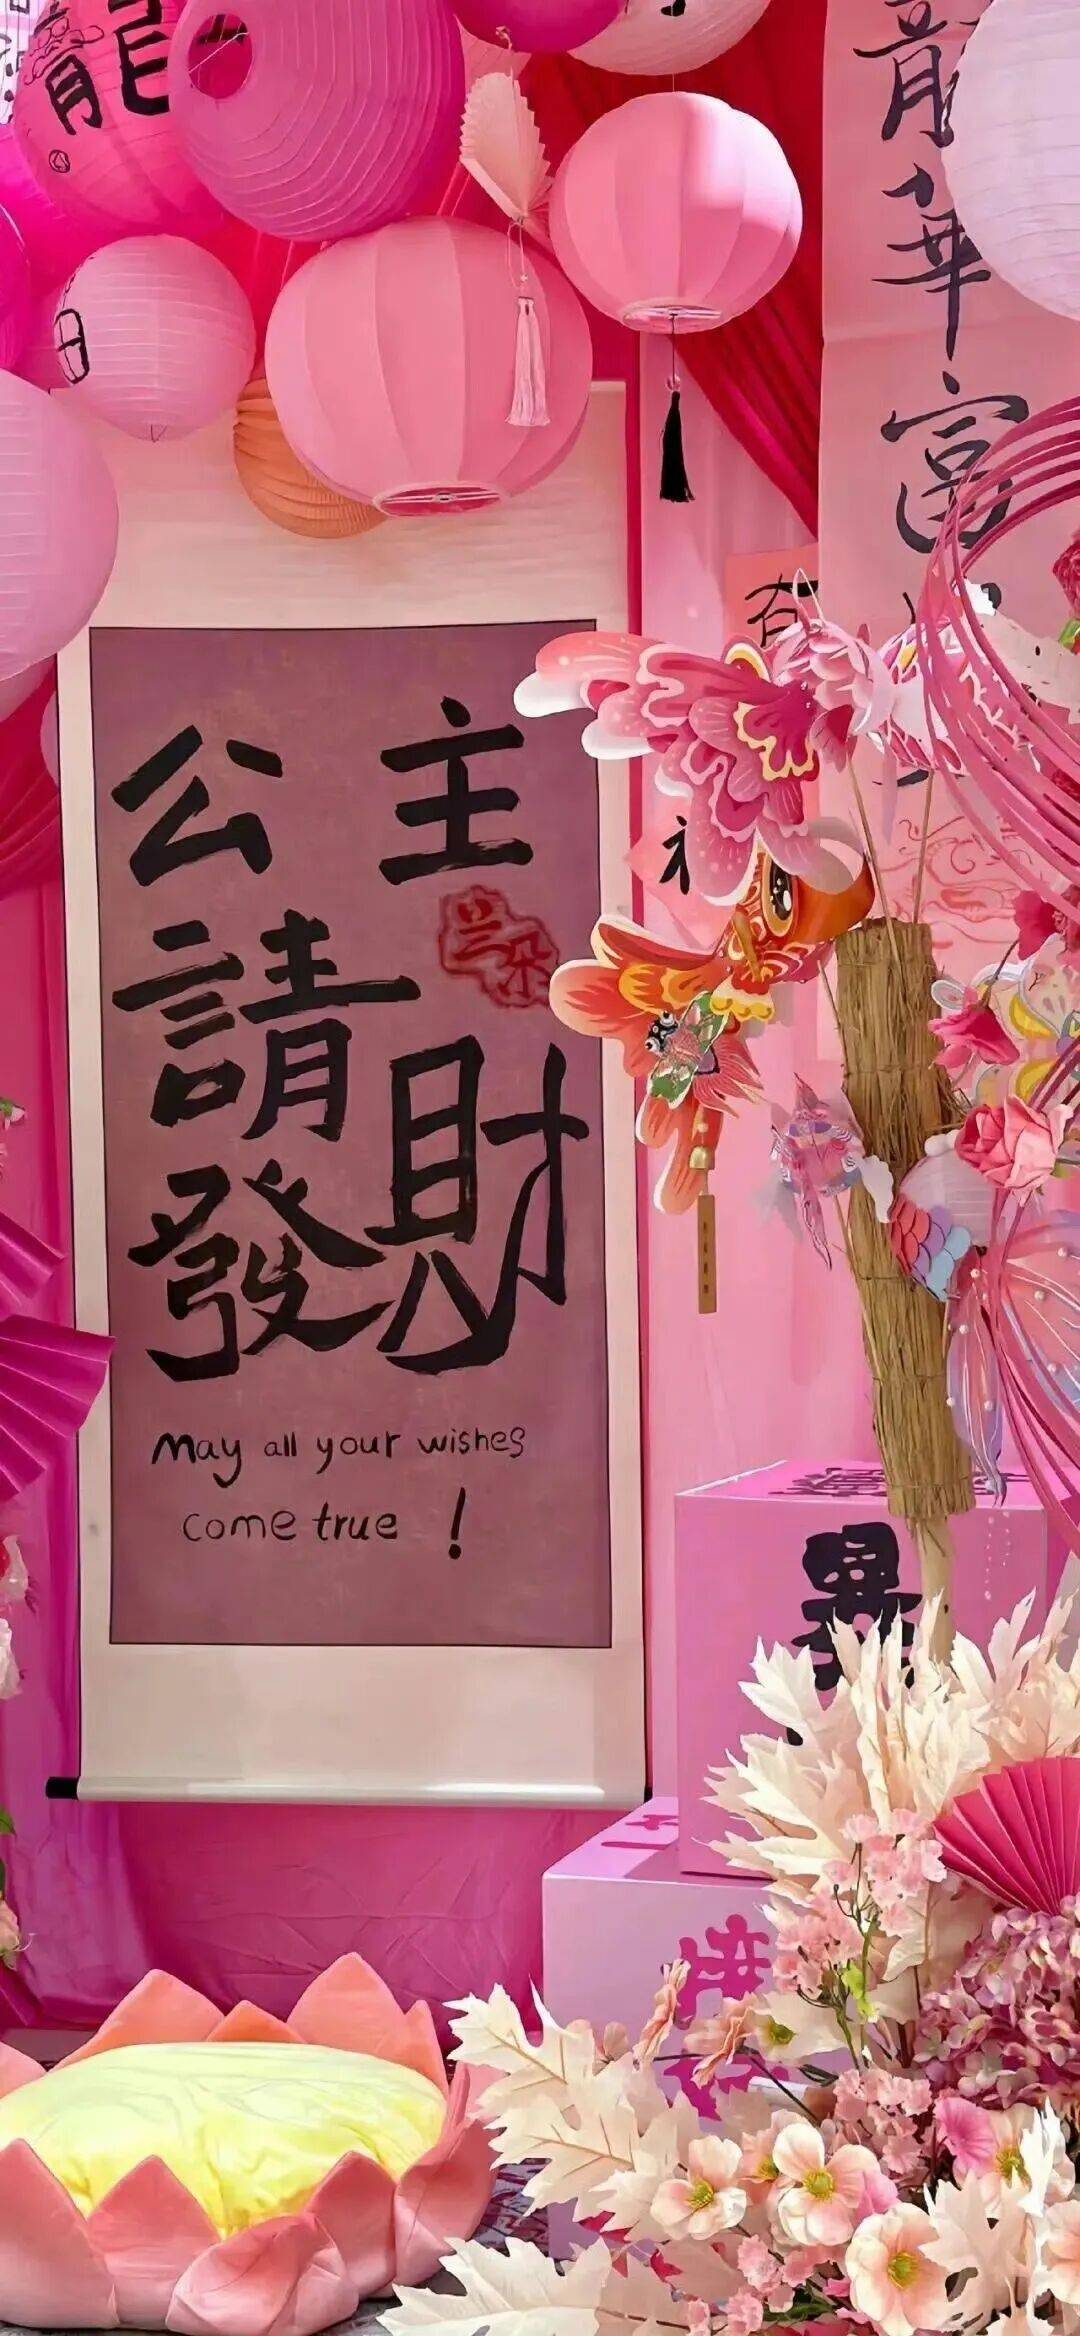 龍
日
龍
華
富
有
公主
請
發財
兰朵
May all your wishes
come true !
暴